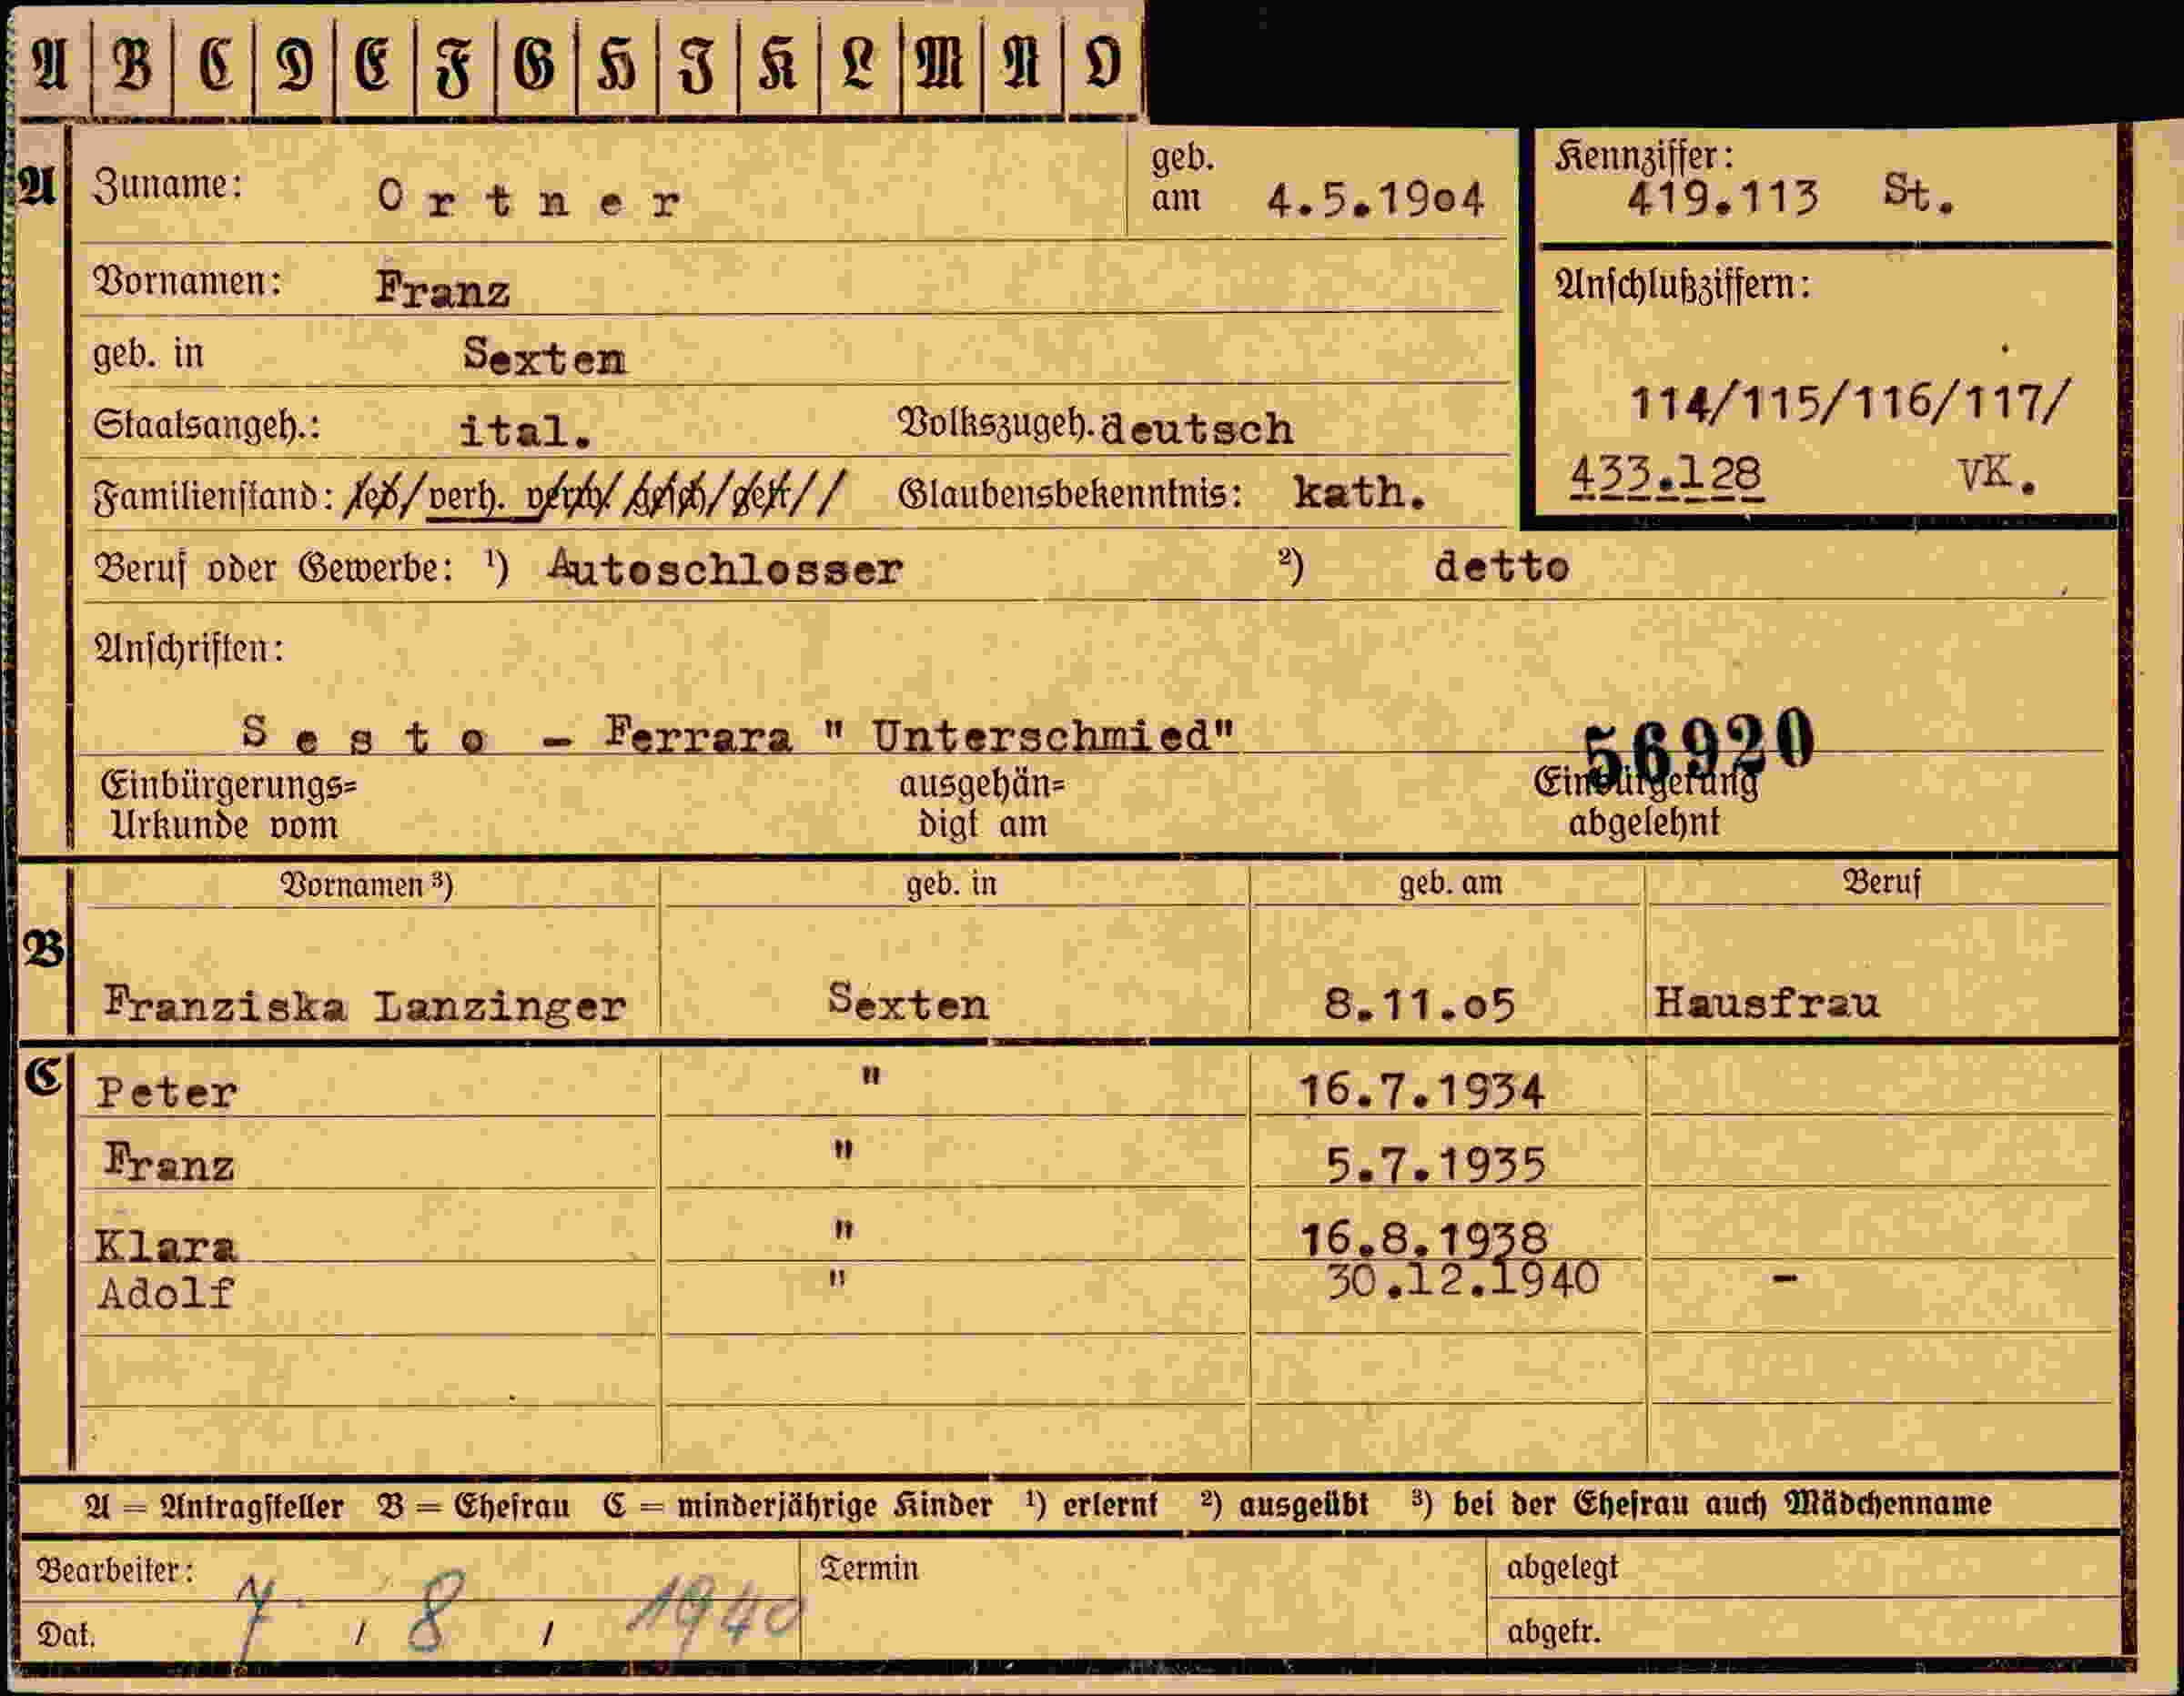 A B C D E F G H I K L M N O
A Zuname: Ortner geb. am 4.5.19o4 Kennziffer: 419.113 St.
Vornamen: Franz Anschlußziffern:
geb. in Sexten
Staatsangeh.: ital. Volkszugeh. deutsch 114/115/116/117/
Familienstand: led/ verh. verw/ gesch/ getr// Glaubensbekenntnis: kath. 433.128 VK.
Beruf oder Gewerbe: ¹) Autoschlosser ²) detto
Anschriften:
Sesto - Ferrara " Unterschmied" 56920
Einbürgerungs= ausgehän= Einbürgerung
Urkunde vom digt am abgelehnt
Vornamen ³) geb. in geb. am Beruf
B
Franziska Lanzinger Sexten 8.11.o5 Hausfrau
C Peter " 16.7.1934
Franz " 5.7.1935
Klara " 16.8.1938
Adolf " 30.12.1940 -
A = Antragsteller B = Ehefrau C = minderjährige Kinder ¹) erlernt ²) ausgeübt ³) bei der Ehefrau auch Mädchenname
Bearbeiter: Termin abgelegt
Dat. 7. / 8 / 1940 abgetr.